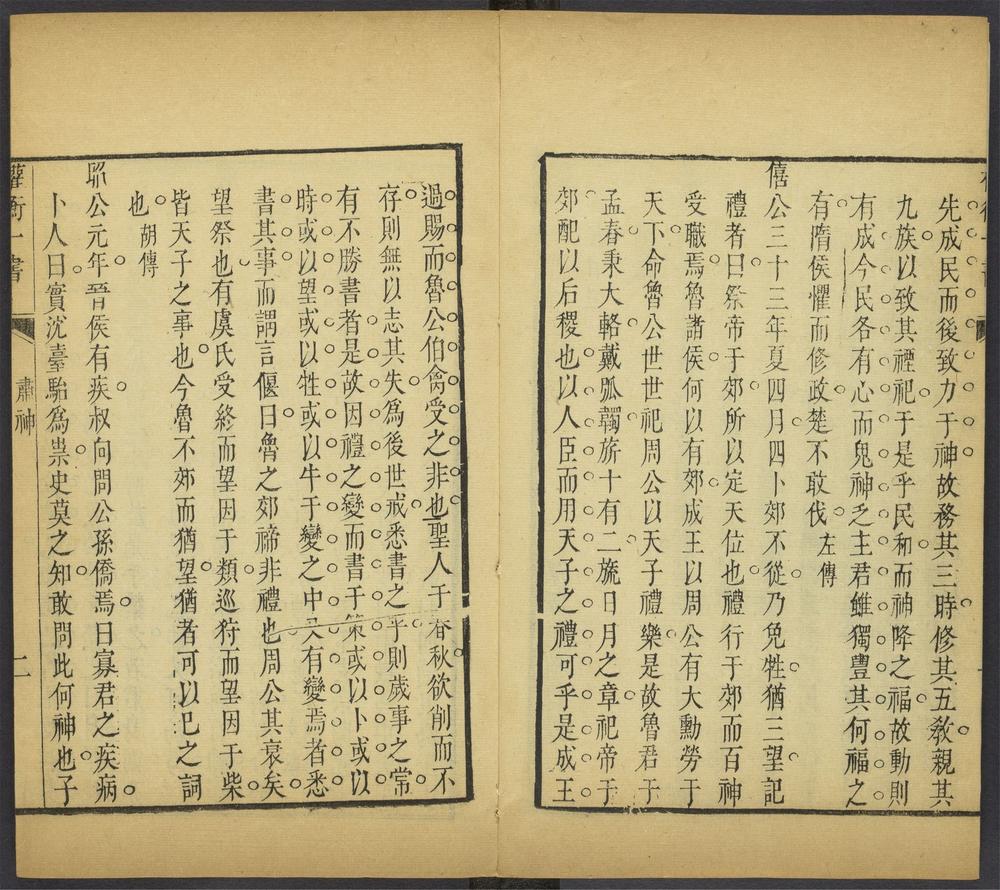 先成民而後致力于神故務其三時修其五敎親其
九族以致其禋祀于是乎民和而神降之福故動則
有成今民各有心而鬼神乏主君雖獨豐其何福之
有隋侯懼而修政楚不敢伐 左傳
僖公三十三年夏四月四卜郊不從乃免牲猶三望記
禮者曰祭帝于郊所以定天位也禮行于郊而百神
受職焉魯諸侯何以有郊成王以周公有大勳勞于
天下命魯公世世祀周公以天子禮樂是故魯君于
孟春乘大輅載弧韣旂十有二旒日月之章祀帝于
郊配以后稷也以人臣而用天子之禮可乎是成王
過賜而魯公伯禽受之非也聖人于春秋欲削而不
存則無以志其失爲後世戒悉書之乎則歲事之常
有不勝書者是故因禮之變而書于策或以卜或以
時或以望或以牲或以牛于變之中又有變焉者悉
書其事而謂言偃曰魯之郊禘非禮也周公其衰矣
望祭也有虞氏受終而望因于類巡狩而望因于柴
皆天子之事也今魯不郊而猶望猶者可以已之詞
也 胡傳
昭公元年晉侯有疾叔向問公孫僑焉曰寡君之疾病
卜人曰實沈臺駘爲祟史莫之知敢問此何神也子
肅神
二